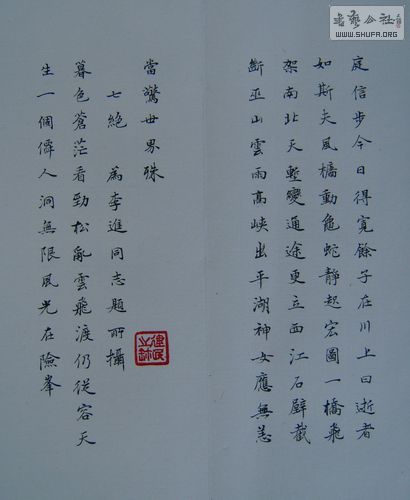 书艺公社
WWW.SHUFA.ORG
庭信步今日得寬餘子在川上曰逝者
如斯夫風檣動龜蛇靜起宏圖一橋飛
架南北天塹變通途更立西江石壁截
斷巫山雲雨高峽出平湖神女應無恙
當驚世界殊
七絕 為李進同志題所攝
暮色蒼茫看勁松亂雲飛渡仍從容天
生一個僊人洞無限風光在險峯